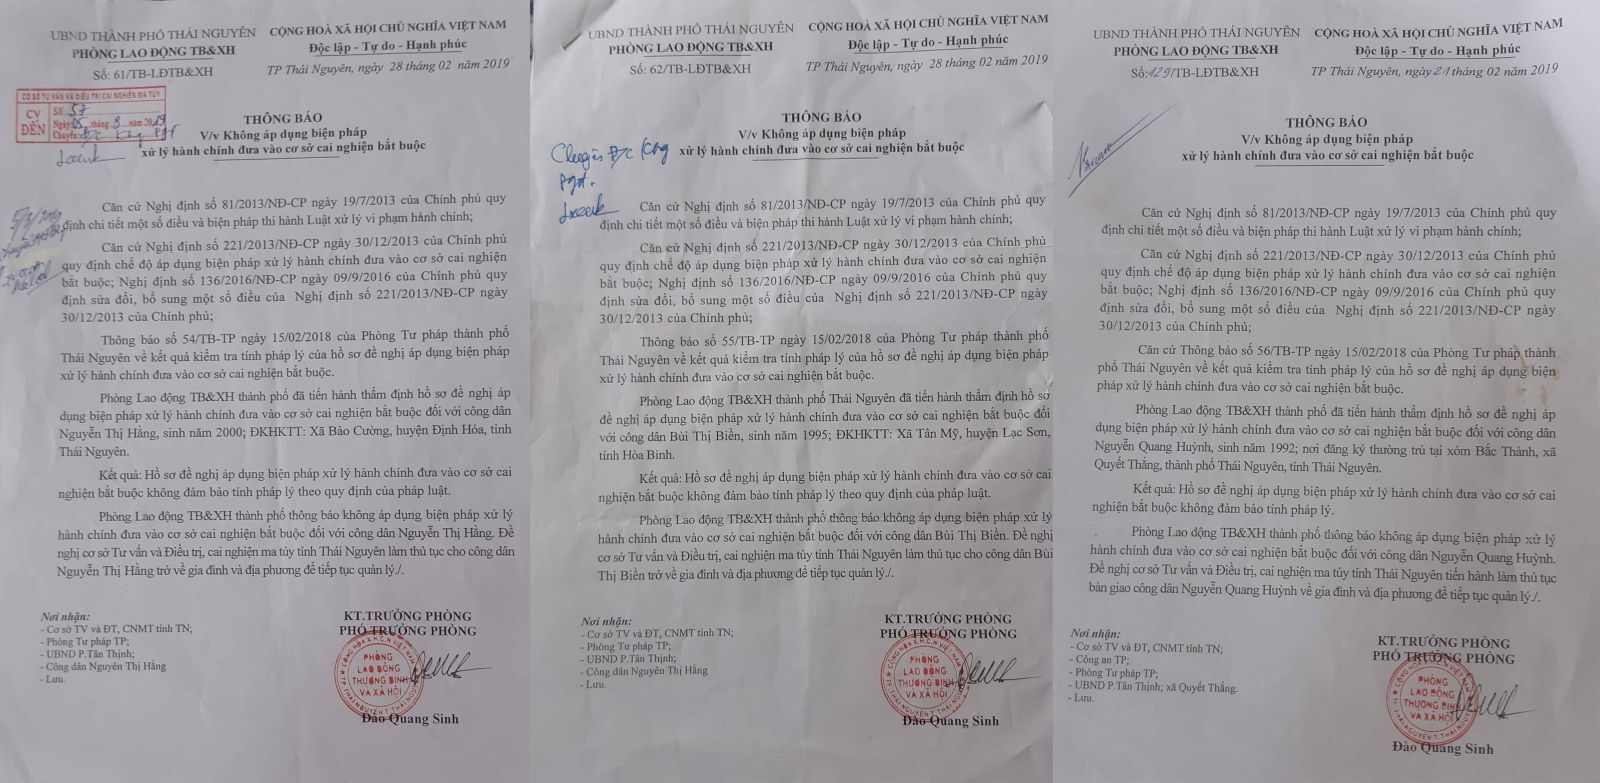 UBND THÀNH PHỐ THÁI NGUYÊN
PHÒNG LAO ĐỘNG TB&XH
Số: 61/TB-LĐTB&XH
CỘNG HOÀ XÃ HỘI CHỦ NGHĨA VIỆT NAM
Độc lập - Tự do - Hạnh phúc
TP Thái Nguyên, ngày 28 tháng 02 năm 2019
CƠ SỞ TƯ VẤN VÀ ĐIỀU TRỊ CAI NGHIỆN MA TÚY
CV ĐẾN
Số: 57
Ngày 05 tháng 3 năm 2019
Chuyển:
THÔNG BÁO
V/v Không áp dụng biện pháp
xử lý hành chính đưa vào cơ sở cai nghiện bắt buộc
Căn cứ Nghị định số 81/2013/NĐ-CP ngày 19/7/2013 của Chính phủ quy
định chi tiết một số điều và biện pháp thi hành Luật xử lý vi phạm hành chính;
Căn cứ Nghị định số 221/2013/NĐ-CP ngày 30/12/2013 của Chính phủ
quy định chế độ áp dụng biện pháp xử lý hành chính đưa vào cơ sở cai nghiện
bắt buộc; Nghị định số 136/2016/NĐ-CP ngày 09/9/2016 của Chính phủ quy
định sửa đổi, bổ sung một số điều của Nghị định số 221/2013/NĐ-CP ngày
30/12/2013 của Chính phủ;
Thông báo số 54/TB-TP ngày 15/02/2018 của Phòng Tư pháp thành phố
Thái Nguyên về kết quả kiểm tra tính pháp lý của hồ sơ đề nghị áp dụng biện pháp
xử lý hành chính đưa vào cơ sở cai nghiện bắt buộc.
Phòng Lao động TB&XH thành phố đã tiến hành thẩm định hồ sơ đề nghị áp
dụng biện pháp xử lý hành chính đưa vào cơ sở cai nghiện bắt buộc đối với công dân
Nguyễn Thị Hằng, sinh năm 2000; ĐKHKTT: Xã Bảo Cường, huyện Định Hóa, tỉnh
Thái Nguyên.
Kết quả: Hồ sơ đề nghị áp dụng biện pháp xử lý hành chính đưa vào cơ sở cai
nghiện bắt buộc không đảm bảo tính pháp lý theo quy định của pháp luật.
Phòng Lao động TB&XH thành phố thông báo không áp dụng biện pháp xử lý
hành chính đưa vào cơ sở cai nghiện bắt buộc đối với công dân Nguyễn Thị Hằng. Đề
nghị cơ sở Tư vấn và Điều trị, cai nghiện ma túy tỉnh Thái Nguyên làm thủ tục cho công dân
Nguyễn Thị Hằng trở về gia đình và địa phương để tiếp tục quản lý./.
Nơi nhận:
- Cơ sở TV và ĐT, CNMT tỉnh TN;
- Phòng Tư pháp TP;
- UBND P.Tân Thịnh;
- Công dân Nguyễn Thị Hằng
- Lưu.
KT.TRƯỞNG PHÒNG
PHÓ TRƯỞNG PHÒNG
PHÒNG
LAO ĐỘNG
THƯƠNG BINH
VÀ XÃ HỘI
Đào Quang Sinh
UBND THÀNH PHỐ THÁI NGUYÊN
PHÒNG LAO ĐỘNG TB&XH
Số: 62/TB-LĐTB&XH
CỘNG HOÀ XÃ HỘI CHỦ NGHĨA VIỆT NAM
Độc lập - Tự do - Hạnh phúc
TP Thái Nguyên, ngày 28 tháng 02 năm 2019
THÔNG BÁO
V/v Không áp dụng biện pháp
xử lý hành chính đưa vào cơ sở cai nghiện bắt buộc
Căn cứ Nghị định số 81/2013/NĐ-CP ngày 19/7/2013 của Chính phủ quy
định chi tiết một số điều và biện pháp thi hành Luật xử lý vi phạm hành chính;
Căn cứ Nghị định số 221/2013/NĐ-CP ngày 30/12/2013 của Chính phủ
quy định chế độ áp dụng biện pháp xử lý hành chính đưa vào cơ sở cai nghiện
bắt buộc; Nghị định số 136/2016/NĐ-CP ngày 09/9/2016 của Chính phủ quy
định sửa đổi, bổ sung một số điều của Nghị định số 221/2013/NĐ-CP ngày
30/12/2013 của Chính phủ;
Thông báo số 55/TB-TP ngày 15/02/2018 của Phòng Tư pháp thành phố
Thái Nguyên về kết quả kiểm tra tính pháp lý của hồ sơ đề nghị áp dụng biện pháp
xử lý hành chính đưa vào cơ sở cai nghiện bắt buộc.
Phòng Lao động TB&XH thành phố Thái Nguyên đã tiến hành thẩm định hồ sơ
đề nghị áp dụng biện pháp xử lý hành chính đưa vào cơ sở cai nghiện bắt buộc đối
với công dân Bùi Thị Biển, sinh năm 1995; ĐKHKTT: Xã Tân Mỹ, huyện Lạc Sơn,
tỉnh Hòa Bình.
Kết quả: Hồ sơ đề nghị áp dụng biện pháp xử lý hành chính đưa vào cơ sở cai
nghiện bắt buộc không đảm bảo tính pháp lý theo quy định của pháp luật.
Phòng Lao động TB&XH thành phố thông báo không áp dụng biện pháp xử lý
hành chính đưa vào cơ sở cai nghiện bắt buộc đối với công dân Bùi Thị Biển. Đề nghị
cơ sở Tư vấn và Điều trị, cai nghiện ma túy tỉnh Thái Nguyên làm thủ tục cho công dân Bùi
Thị Biển trở về gia đình và địa phương để tiếp tục quản lý./.
Nơi nhận:
- Cơ sở TV và ĐT, CNMT tỉnh TN;
- Phòng Tư pháp TP;
- UBND P.Tân Thịnh;
- Công dân Nguyễn Thị Hằng
- Lưu.
KT.TRƯỞNG PHÒNG
PHÓ TRƯỞNG PHÒNG
PHÒNG
LAO ĐỘNG
THƯƠNG BINH
VÀ XÃ HỘI
Đào Quang Sinh
UBND THÀNH PHỐ THÁI NGUYÊN
PHÒNG LAO ĐỘNG TB&XH
Số: 129/TB-LĐTB&XH
CỘNG HOÀ XÃ HỘI CHỦ NGHĨA VIỆT NAM
Độc lập - Tự do - Hạnh phúc
TP Thái Nguyên, ngày 21 tháng 02 năm 2019
THÔNG BÁO
V/v Không áp dụng biện pháp
xử lý hành chính đưa vào cơ sở cai nghiện bắt buộc
Căn cứ Nghị định số 81/2013/NĐ-CP ngày 19/7/2013 của Chính phủ quy
định chi tiết một số điều và biện pháp thi hành Luật xử lý vi phạm hành chính;
Căn cứ Nghị định số 221/2013/NĐ-CP ngày 30/12/2013 của Chính phủ
quy định chế độ áp dụng biện pháp xử lý hành chính đưa vào cơ sở cai nghiện
bắt buộc; Nghị định số 136/2016/NĐ-CP ngày 09/9/2016 của Chính phủ quy
định sửa đổi, bổ sung một số điều của Nghị định số 221/2013/NĐ-CP ngày
30/12/2013 của Chính phủ;
Căn cứ Thông báo số 56/TB-TP ngày 15/02/2018 của Phòng Tư pháp thành
phố Thái Nguyên về kết quả kiểm tra tính pháp lý của hồ sơ đề nghị áp dụng biện
pháp xử lý hành chính đưa vào cơ sở cai nghiện bắt buộc.
Phòng Lao động TB&XH thành phố đã tiến hành thẩm định hồ sơ đề nghị áp
dụng biện pháp xử lý hành chính đưa vào cơ sở cai nghiện bắt buộc đối với công dân
Nguyễn Quang Huỳnh, sinh năm 1992; nơi đăng ký thường trú tại xóm Bắc Thành, xã
Quyết Thắng, thành phố Thái Nguyên, tỉnh Thái Nguyên.
Kết quả: Hồ sơ đề nghị áp dụng biện pháp xử lý hành chính đưa vào cơ sở cai
nghiện bắt buộc không đảm bảo tính pháp lý.
Phòng Lao động TB&XH thành phố thông báo không áp dụng biện pháp xử lý
hành chính đưa vào cơ sở cai nghiện bắt buộc đối với công dân Nguyễn Quang Huỳnh.
Đề nghị cơ sở Tư vấn và Điều trị, cai nghiện ma túy tỉnh Thái Nguyên tiến hành làm thủ tục
bàn giao công dân Nguyễn Quang Huỳnh về gia đình và địa phương để tiếp tục quản lý./.
Nơi nhận:
- Cơ sở TV và ĐT, CNMT tỉnh TN;
- Công an TP;
- Phòng Tư pháp TP;
- UBND P.Tân Thịnh; xã Quyết Thắng.
- Lưu.
KT.TRƯỞNG PHÒNG
PHÓ TRƯỞNG PHÒNG
PHÒNG
LAO ĐỘNG
THƯƠNG BINH
VÀ XÃ HỘI
Đào Quang Sinh